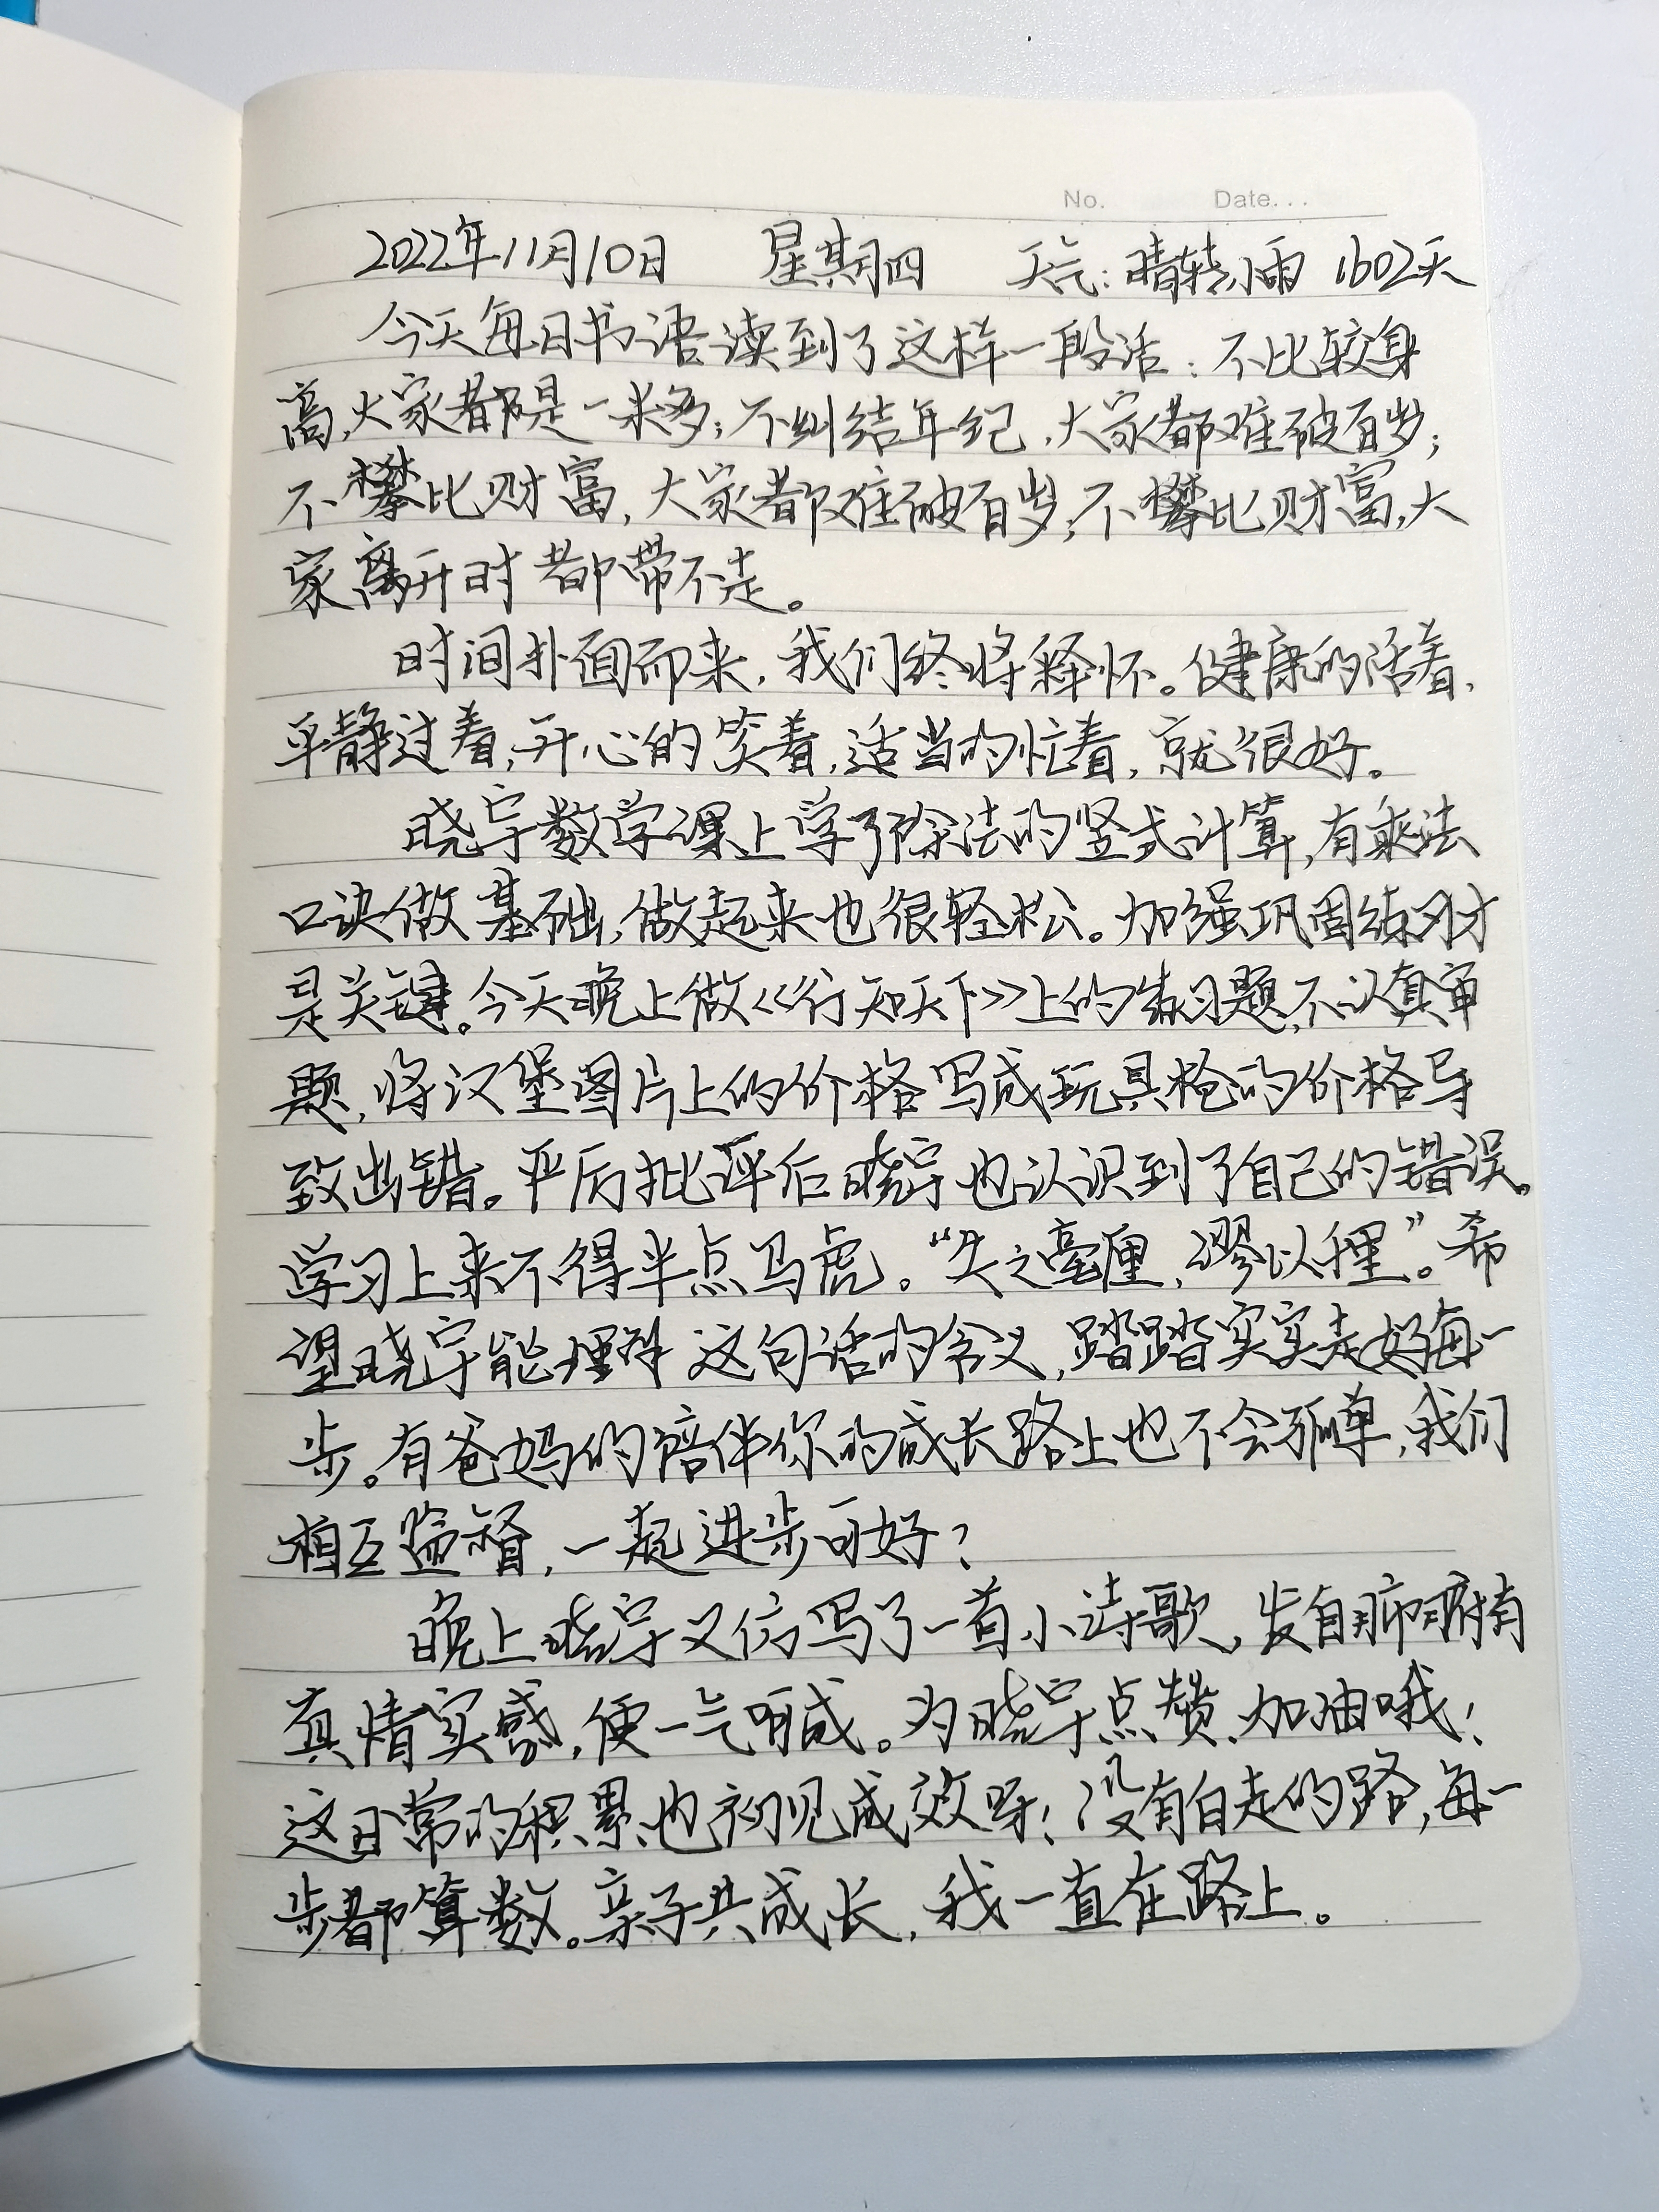 No. Date...
2022年11月10日 星期四 天气:晴转小雨 1602天
今天每日书语读到了这样一段话:不比较身
高,大家都是一米多;不纠结年纪,大家都难破百岁;
不攀比财富,大家都难破百岁;不攀比财富,大
家离开时都带不走。
时间扑面而来,我们终将释怀。健康的活着,
平静过着,开心的笑着,适当的忙着,就很好。
晓宇数学课上学了除法的竖式计算,有乘法
口诀做基础,做起来也很轻松。加强巩固练习才
是关键。今天晚上做《行知天下》上的练习题,不认真审
题,将汉堡图片上的价格写成玩具枪的价格导
致出错。严厉批评后晓宇也认识到了自己的错误。
学习上来不得半点马虎。“失之毫厘,谬以裡”。希
望晓宇能理解这句话的含义,踏踏实实走好每一
步。有爸妈的陪伴你的成长路上也不会孤单,我们
相互监督,一起进步可好?
晚上晓宇又仿写了一首小诗歌,发自肺腑有
真情实感,便一气呵成。为晓宇点赞,加油哦!
这日常的积累也初见成效呀!没有白走的路,每一
步都算数。亲子共成长,我一直在路上。